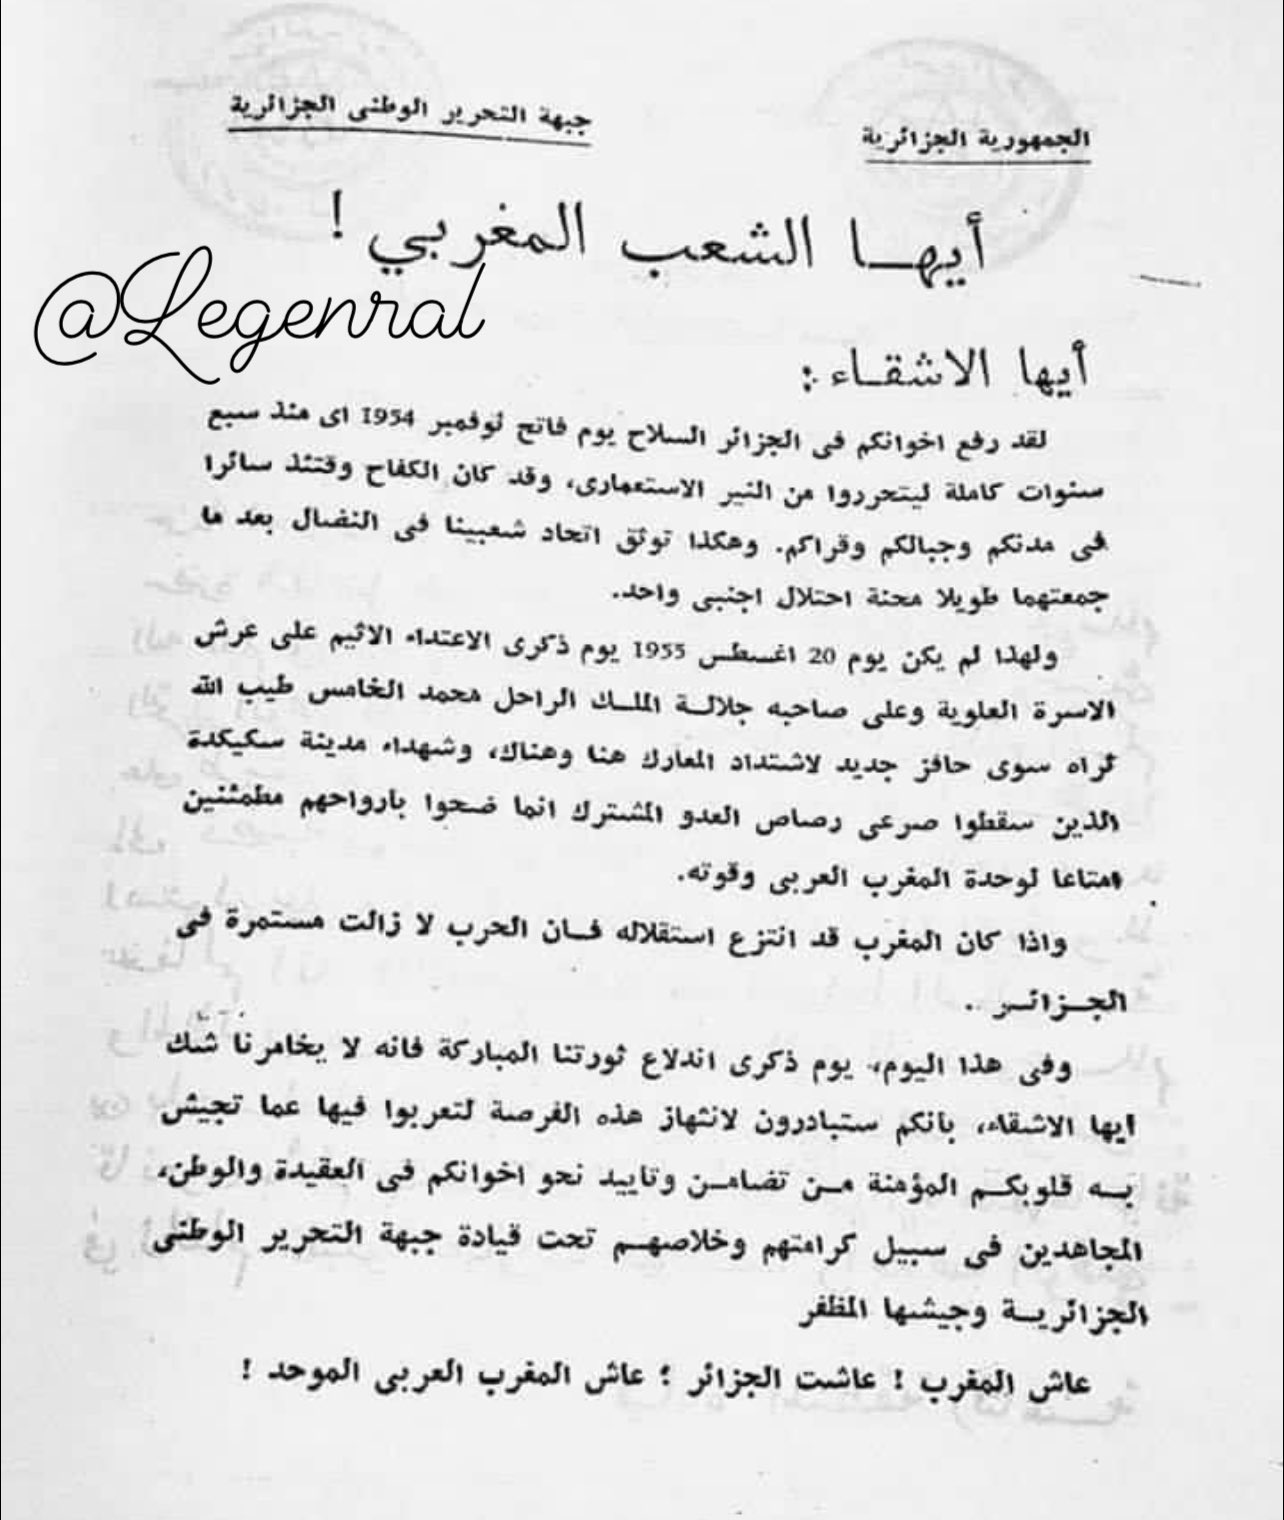 الجمهورية الجزائرية
جبهة التحرير الوطنى الجزائرية
أيهـا الشعب المغربي !
@Legenral
أيها الاشقـاء :
لقد رفع اخوانكم فى الجزائر السلاح يوم فاتح نوفمبر 1954 اى منذ سبع
سنوات كاملة ليتحرروا من النير الاستعمارى، وقد كان الكفاح وقتئذ سائرا
فى مدنكم وجبالكم وقراكم. وهكذا توثق اتحاد شعبينا فى النضال بعد ما
جمعتهما طويلا محنة احتلال اجنبى واحد.
ولهذا لم يكن يوم 20 اغسطس 1955 يوم ذكرى الاعتداء الاثيم على عرش
الاسرة العلوية وعلى صاحبه جلالـة الملـك الراحل محمد الخامس طيب الله
ثراه سوى حافز جديد لاشتداد المعارك هنا وهناك، وشهداء مدينة سكيكدة
الذين سقطوا صرعى رصاص العدو المشترك انما ضحوا بارواحهم مطمئنين
امتاعا لوحدة المغرب العربى وقوته.
واذا كان المغرب قد انتزع استقلاله فـان الحرب لا زالت مستمرة فى
الجـزائـر ..
وفى هذا اليوم، يوم ذكرى اندلاع ثورتنا المباركة فانه لا يخامرنا شك
ايها الاشقاء، بانكم ستبادرون لانتهاز هذه الفرصة لتعربوا فيها عما تجيش
بـه قلوبكـم المؤمنة مـن تضامـن وتاييد نحو اخوانكم فى العقيدة والوطن،
المجاهدين فى سبيل كرامتهم وخلاصهـم تحت قيادة جبهة التحرير الوطنى
الجزائريـة وجيشها المظفر
عاش المغرب ! عاشت الجزائر ! عاش المغرب العربى الموحد !